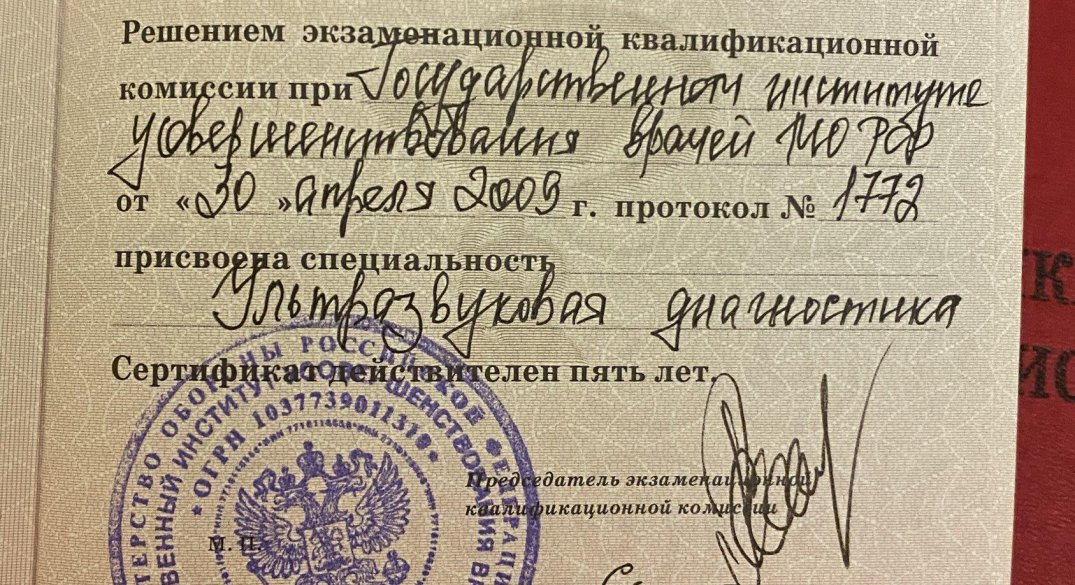 Решением экзаменационной квалификационной
комиссии при Государственном институте
усовершенствования врачей МО РФ
от «30» апреля 2009 г. протокол № 1772
присвоена специальность
Ультразвуковая диагностика
Сертификат действителен пять лет.
Председатель экзаменационной
квалификационной комиссии
М. П.
ОБОРОНЫ РОССИЙСКОЙ
ИНСТИТУТ УСОВЕРШЕНСТВОВАНИЯ
* ОГРН 1037739011310 *